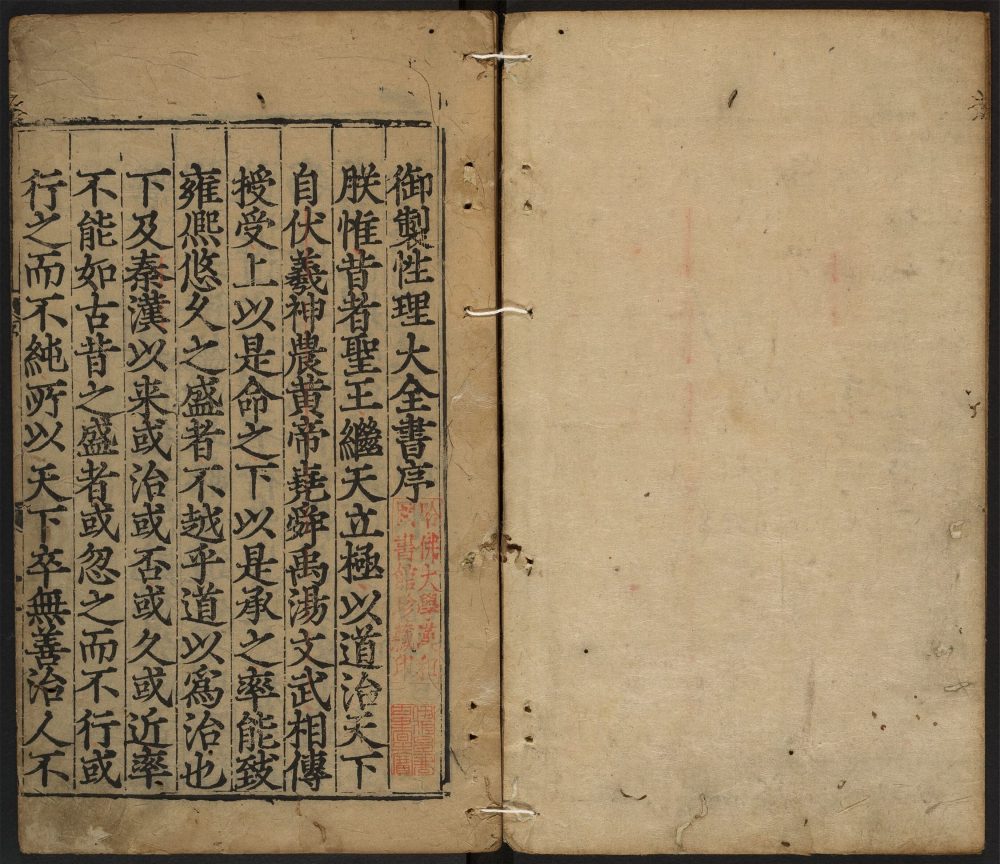 御製性理大全書序
朕惟昔者聖王繼天立極以道治天下
自伏羲神農黃帝堯舜禹湯文武相傳
授受上以是命之下以是承之率能致
雍熈悠久之盛者不越乎道以爲治也
下及秦漢以来或治或否或久或近率
不能如古昔之盛者或忽之而不行或
行之而不純所以天下卒無善治人不
哈佛大學
書館珍藏印